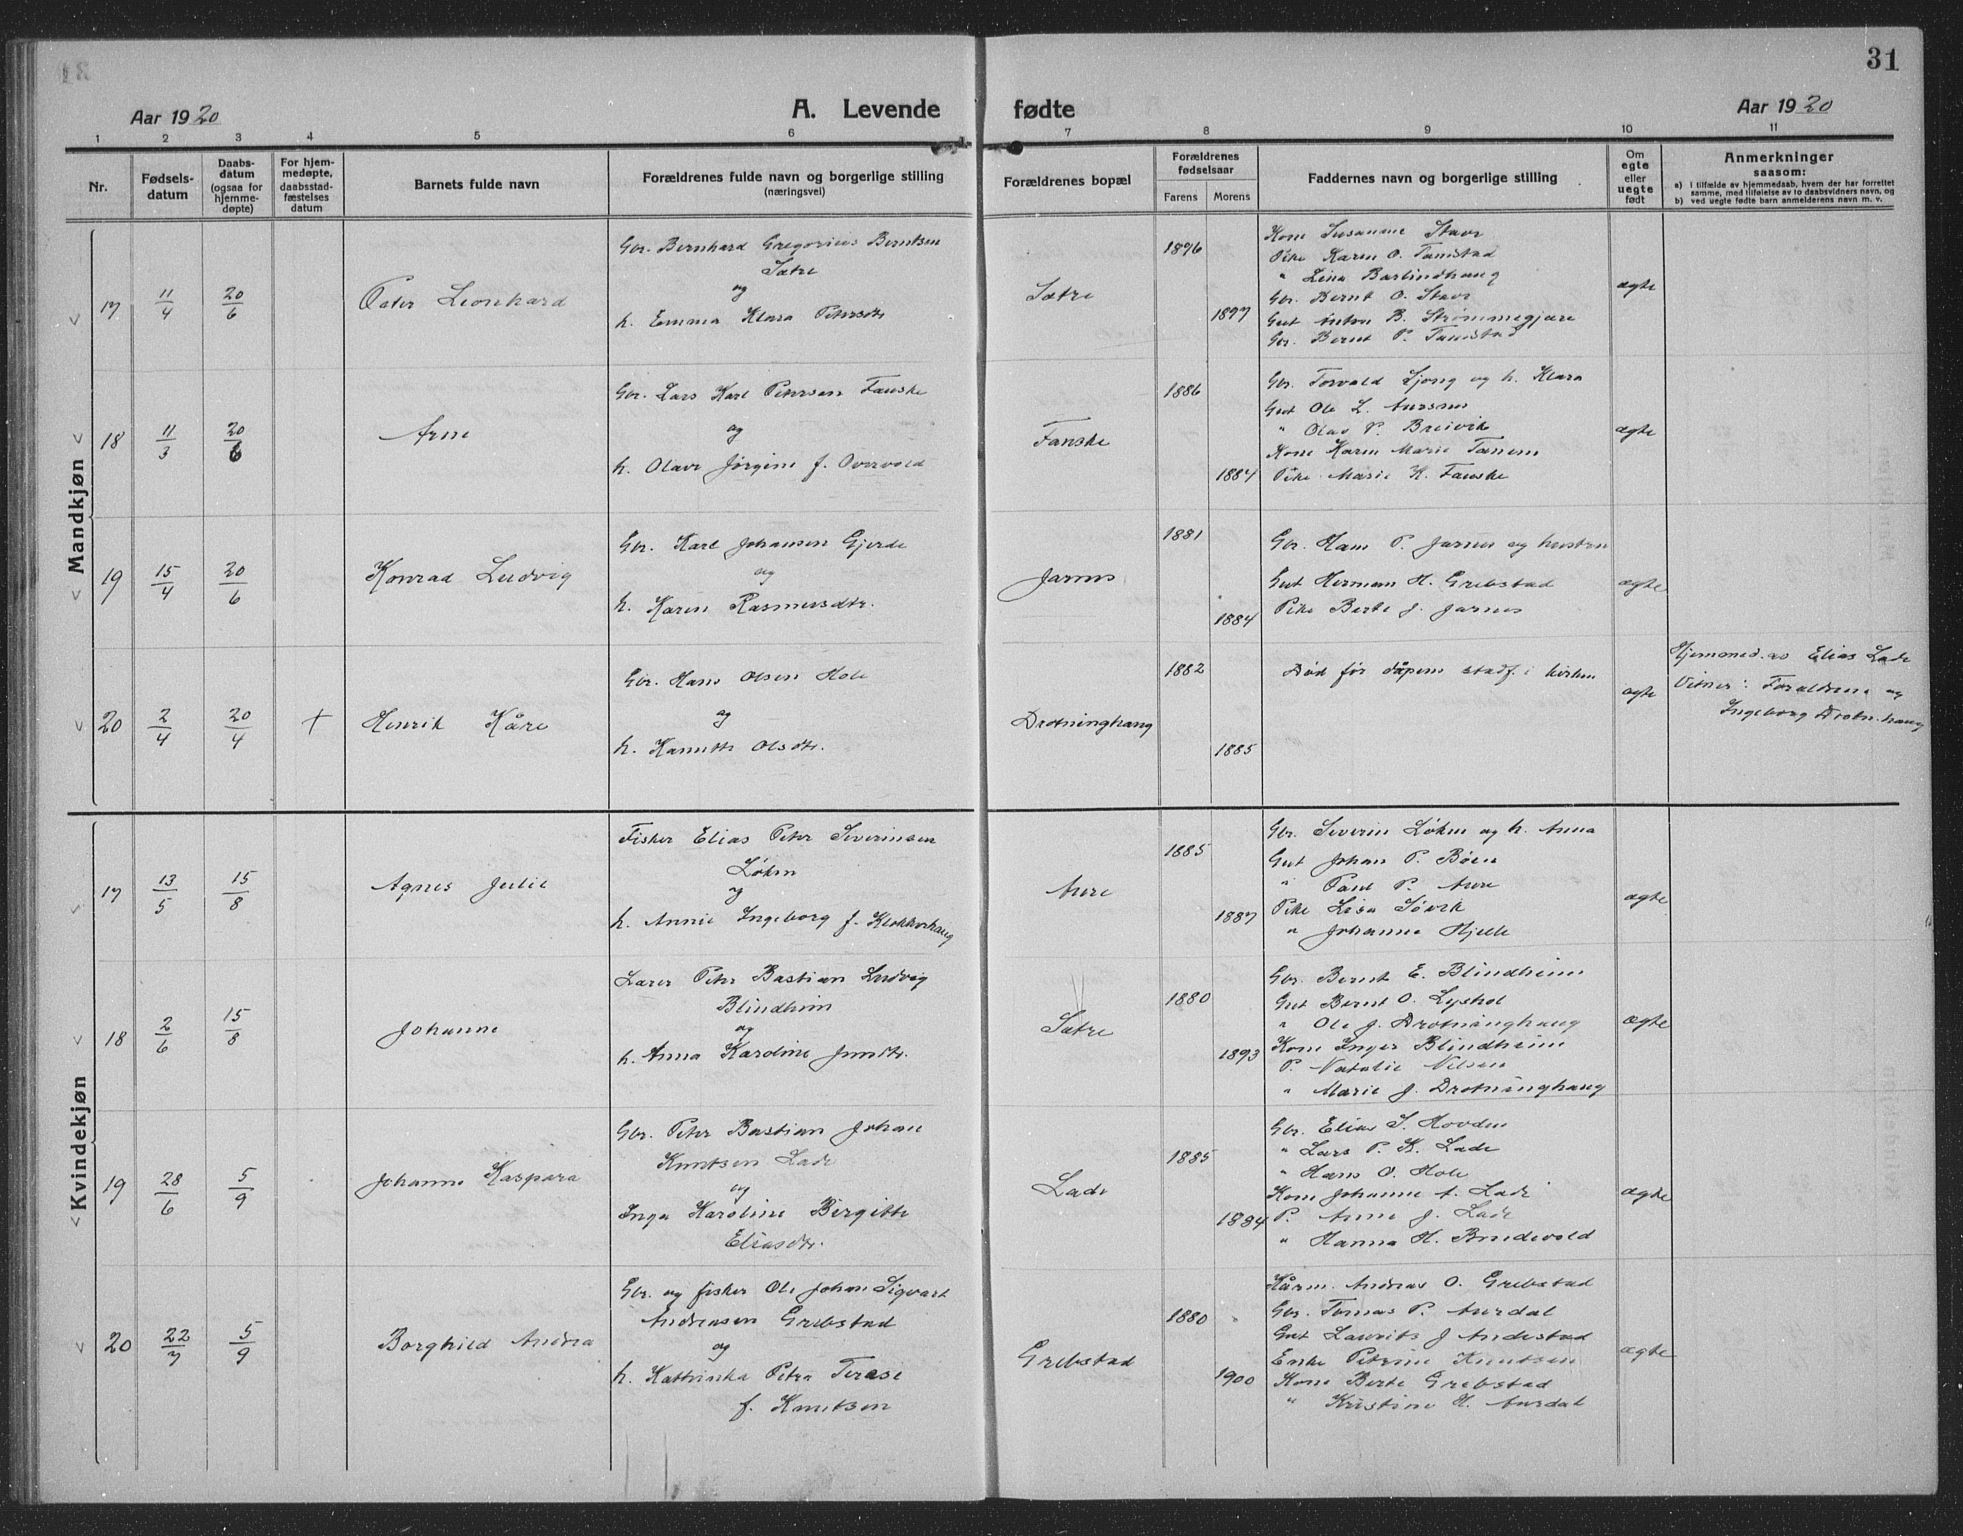 31
Aar 1920
A. Levende fødte
Aar 1920
1 2 3 4 5 6 7 8 9 10 11
Nr.
Fødsels-
datum
Daabs-
datum
(ogsaa for
hjemme-
døpte)
For hjem-
medøpte,
daabsstad-
fæstelses
datum
Barnets fulde navn
Forældrenes fulde navn og borgerlige stilling
(næringsvei)
Forældrenes bopæl
Forældrenes
fødselsaar
Farens Morens
Faddernes navn og borgerlige stilling
Om
egte
eller
uegte
født
Anmerkninger
saasom:
a) i tilfælde av hjemmedaab, hvem der har forrettet
samme, med tilføielse av to daabsvidners navn, og
b) ved uegte fødte barn anmelderens navn m. v.
Mandkjøn
17 11/4 20/6
Peter Leonhard
Gbr. Bernhard Gregorius Berntsen
Sætre
og
h. Emma Klara Petersdtr
Sætre
1896
1897
Kone Susanne Stavs
Pike Karen O. Tamstad
" Lina Barlindhaug
Gbr. Bernt O. Stavs
Gut Anton B. Strømmegjære
Gbr. Bernt P. Tamstad
ægte
18 11/3 20/6
Arne
Gbr. Lars Karl Petersen Fauske
og
h. Olave Jørgine f. Overvold
Fauske
1886
1884
Gbr. Torvald Ljong og h. Klara
Gut Ole L. Aursnes
" Olav P. Breivik
Kone Karen Marie Tanem
Pike Marie K. Fauske
ægte
19 15/4 20/6
Konrad Ludvig
Gbr. Karl Johansen Gjerde
og
h. Karen Rasmusdtr.
Jarnes
1881
1884
Gbr. Hans P. Jarnes og hustru
Gut Herman H. Grebstad
Pike Berte J. Jarnes
ægte
20 2/4 20/4 +
Henrik Kåre
Gbr. Hans Olsen Hole
og
h. Kanutte Olsdtr.
Drotninghaug
1882
1885
Død før dåpens stadf. i kirken
ægte
Hjemmed. av Elias Lade
Vitner: Foraldrene og
Ingeborg Drotn.haug
Kvindekjøn
17 13/5 15/8
Agnes Julie
Fisker Elias Peter Severinsen
Løken
og
h. Annie Ingeborg f. Klokkerhaug
Aure
1885
1887
Gbr. Severin Løken og h. Anna
Gut Johan P. Bøen
" Paul P. Aure
Pike Lisa Søvik
" Johanne Hjelle
ægte
18 2/6 15/8
Johanne
Lærer Peter Bastian Ludvig
Blindheim
og
h. Anna Karoline Jensdtr.
Sætre
1880
1893
Gbr. Bernt E. Blindheim
Gut Bernt O. Lyshol
" Ole J. Drotninghaug
Kone Inger Blindheim
P. Natalie Nilsen
" Marie J. Drotninghaug
ægte
19 28/6 5/9
Johanne Kaspara
Gbr. Peter Bastian Johan
Knutsen Lade
og
Inga Karoline Birgitte
Eliasdtr.
Lade
1885
1884
Gbr. Elias S. Hovden
" Lars P. K. Lade
" Hans O. Hole
Kone Johanne A. Lade
P. Anne J. Lade
" Hanna H. Brudevold
ægte
20 22/7 5/9
Borghild Andrea
Gbr. og fisker Ole Johan Sigvart
Andreasen Grebstad
og
h. Kattrinka Petra Terese
f. Knutsen
Grebstad
1880
1900
Kårm. Andreas O. Grebstad
Gbr. Tomas P. Aurdal
Gut Laurits J Andestad
Enke Petrine Knutsen
Kone Berte Grebstad
" Kristine H. Aurdal
ægte